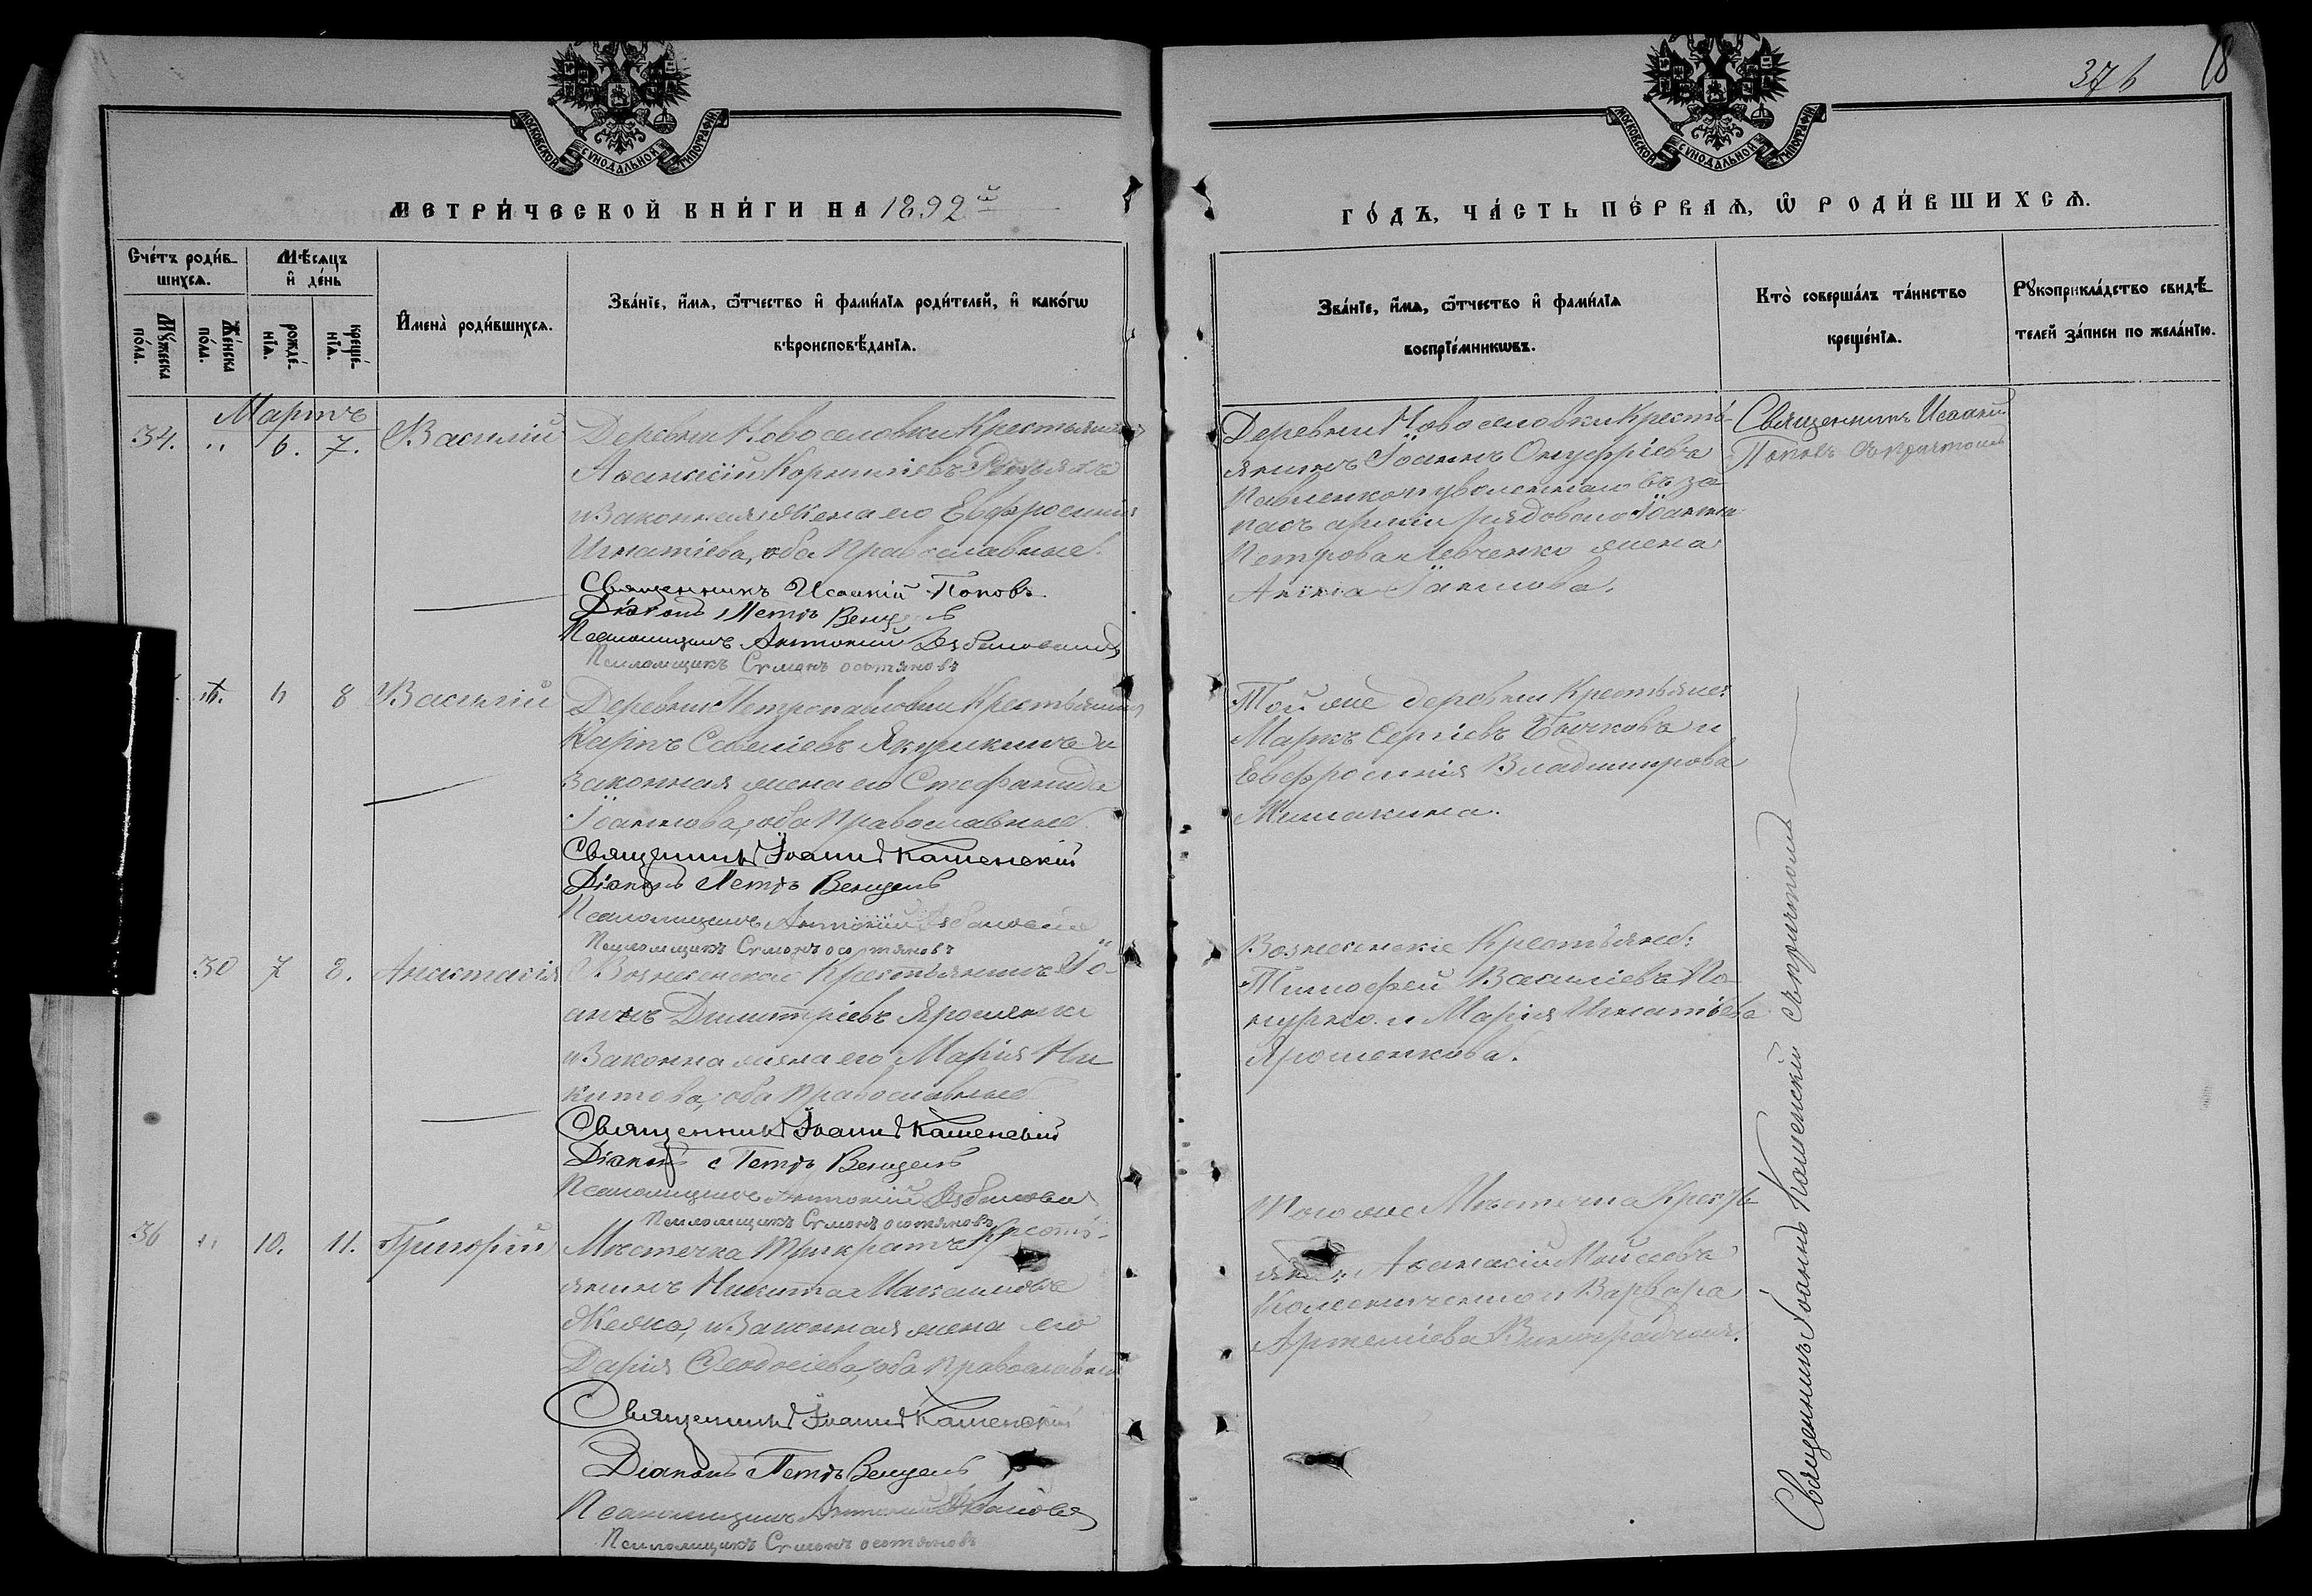 376
18
МОСКОВСКОЙ СѴНОДАЛЬНОЙ ТИПОГРАФІИ
МОСКОВСКОЙ СѴНОДАЛЬНОЙ ТИПОГРАФІИ
МЕТРИ́ЧЕСКОЙ КНИ́ГИ НА 1892й
ГО́ДЪ, ЧА́СТЬ ПЕ́РВАЯ, Ѡ РОДИ́ВШИХСЯ.
Сче́тъ роди́в-
шихся.
Му́жеска по́ла.
Же́нска по́ла.
Мѣ́сяцъ
и҆ де́нь
рожде́-
нїя.
креще́-
нїя.
И҆мена̀ роди́вшихся.
Зва́нїе, и҆́мя, ѻ҆́тчество и҆ фами́лїя роди́телей, и҆ како́гѡ
вѣроисповѣ́данїя.
Зва́нїе, и҆́мя, ѻ҆́тчество и҆ фами́лїя
воспрїе́мникѡвъ.
Кто̀ соверша́лъ та́инство
креще́нїя.
Рꙋкоприкла́дство свидѣ́-
телей за́писи по жела́нїю.
Мартъ
34. " 6. 7. Василій
Деревни Новоселовки Крестьянинъ
Аѳанасій Корниліевъ
и законная жена его Евфросинія
Игнатіева, оба Православные.
Священникъ Исаакій Поповъ
Діаконъ Петръ Венцель
Псаломщикъ Антоній
Псаломщикъ Симонъ
Деревни Новоселовки Кресть-
янинъ Іоаннъ Онуфріевъ
Павленко и уволеннаго въ за-
пасъ арміи рядоваго Іоанна
Петрова Левченко жена
Анна
Священникъ Исаакій
Поповъ съ причтомъ
6 8 Василій
Деревни Петропавловки Крестьянинъ
Карпъ Савеліевъ Якушкинъ и
законная жена его Стефанида
Іоаннова, оба Православные.
Священникъ Іоаннъ Каменскій
Діаконъ Петръ Венцель
Псаломщикъ Антоній
Псаломщикъ Симонъ
Той же деревни Крестьяне:
Маркъ Сергіевъ Бычковъ и
Евфросинія Владимирова
30 7 8. Анастасія
Вознесенскій Крестьянинъ Іо-
аннъ Димитріевъ Ярошенко
и законна жена его Марія Ни-
китова, оба Православные
Священникъ Іоаннъ Каменскій
Діаконъ Петръ Венцель
Псаломщикъ Антоній
Псаломщикъ Симонъ
Вознесенскіе Крестьяне:
Тимофей Василіевъ
и Марія Игнатіева
Ярошенкова.
36 " 10. 11. Григорій
Мѣстечка Трикратъ Кресть-
янинъ Никита Максимовъ
и законная жена его
Дарія Ѳеодосіева, оба Православные
Священникъ Іоаннъ Каменскій
Діаконъ Петръ Венцель
Псаломщикъ Антоній
Псаломщикъ Симонъ
Того же Мѣстечка Кресть-
яне: Аѳанасій Моисеевъ
Колесниченко и Варвара
Артеміева
Священникъ Іоаннъ Каменскій съ причтомъ